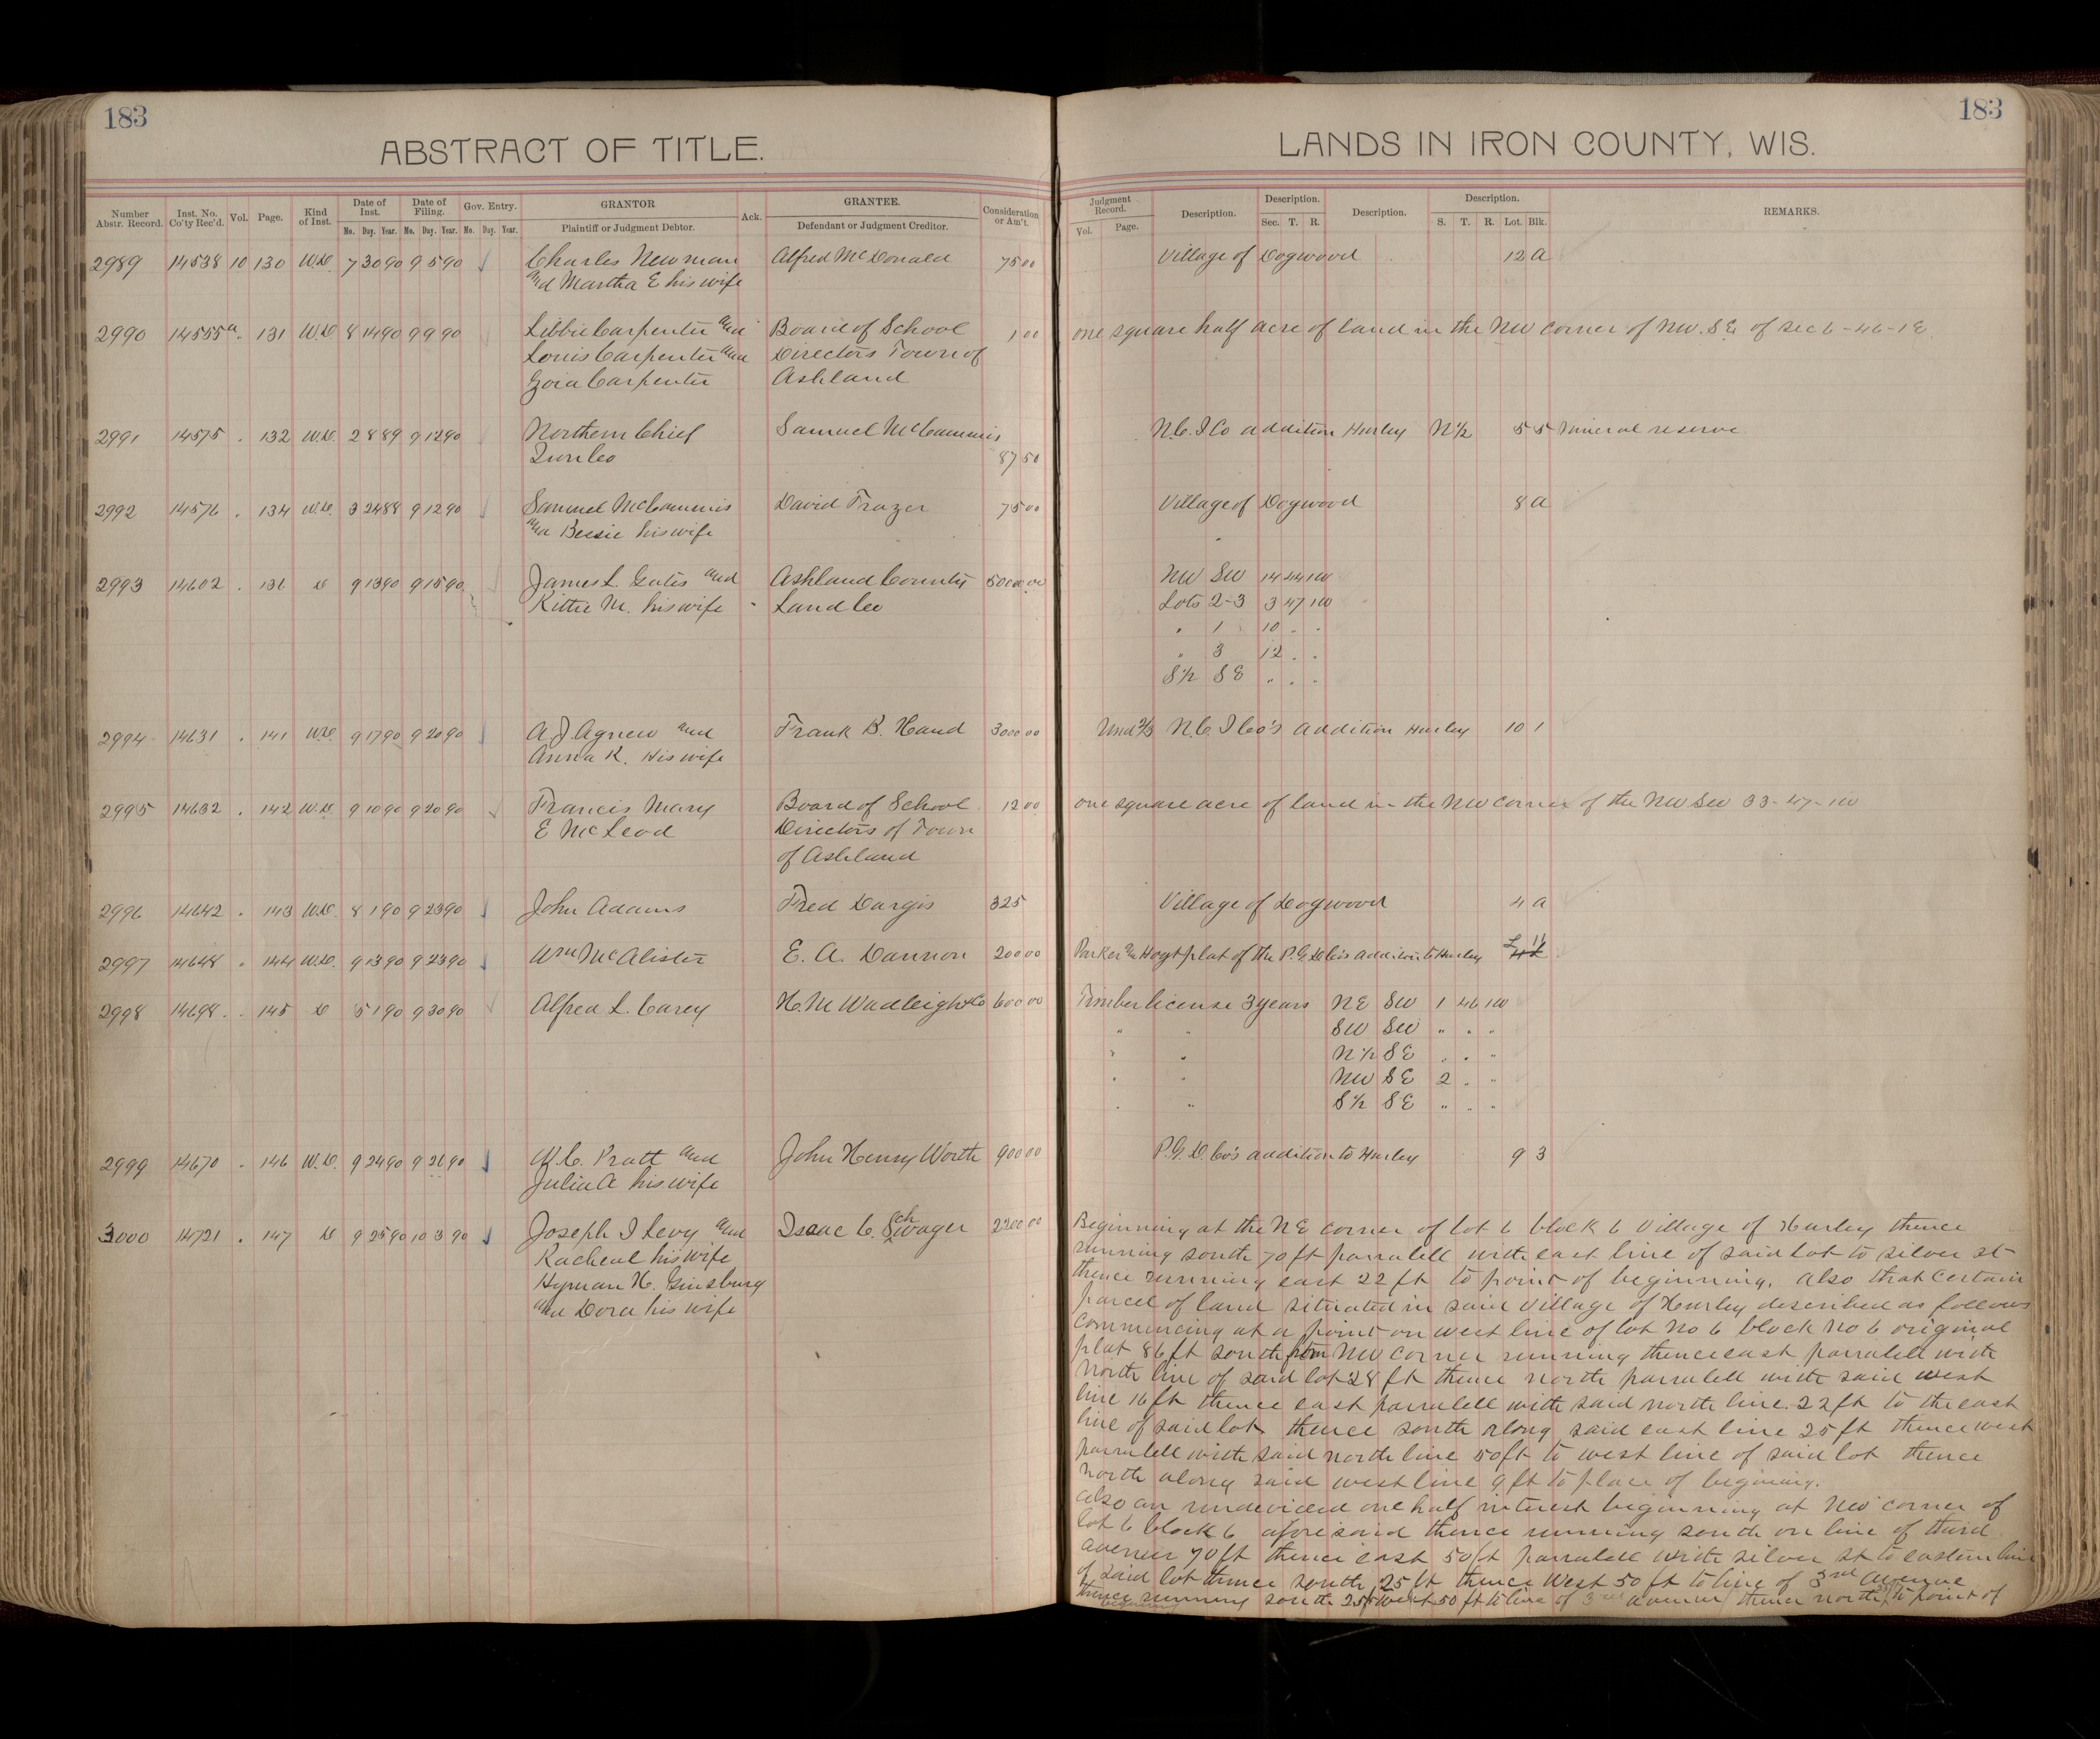 183
ABSTRACT OF TITLE.
Number Abstr. Record. Inst. No. Co'ty Rec'd. Vol. Page. Kind of Inst. Date of Inst. Date of Filing. Gov. Entry. GRANTOR Ack. GRANTEE. Consideration or Am't.
Mo. Day. Year. Mo. Day. Year. Mo. Day. Year. Plaintiff or Judgment Debtor. Defendant or Judgment Creditor.
2989 14538 10 130 W.D. 7 30 90 9 5 90 Charles Newman Alfred McDonald 75 00
and Martha E his wife
2990 14555a . 131 W.D. 8 14 90 9 9 90 Libbie Carpenter and Board of School 1 00
Louis Carpenter and Directors Town of
Zoia Carpenter Ashland
2991 14575 . 132 W.D. 2 8 89 9 12 90 Northern Chief Samuel McCammis
Iron Co 87 50
2992 14576 . 134 W.D. 3 24 88 9 12 90 Samuel McCammis David Frazer 75 00
and Bessie his wife
2993 14602 . 136 D 9 13 90 9 15 90 James L. Gates and Ashland County 50000 00
Kittie M. his wife Land Co
2994 14631 . 141 W.D. 9 17 90 9 20 90 A. J. Agnew and Frank B. Hand 3000 00
Anna K. His wife
2995 14632 . 142 W.D. 9 10 90 9 20 90 Francis Mary Board of School 12 00
E McLeod Directors of Town
of Ashland
2996 14642 . 143 W.D. 8 1 90 9 23 90 John Adams Fred Dargis 325
2997 14648 . 144 W.D. 9 13 90 9 23 90 Wm McAlister E. A. Dannon 200 00
2998 14698 . 145 D 5 1 90 9 30 90 Alfred L. Carey H. M Wadleigh & Co 600 00
2999 14670 . 146 W.D. 9 24 90 9 26 90 W. C. Pratt and John Henry Worth 900 00
Julia A his wife
3000 14721 . 147 D 9 25 90 10 3 90 Joseph I Levy and Isaac C. Schwager 2200 00
Racheal his wife
Hyman H. Ginsburg
and Dora his wife
183
LANDS IN IRON COUNTY, WIS.
Judgment Record. Description. Description. Description. Description. REMARKS.
Vol. Page. Sec. T. R. S. T. R. Lot. Blk.
Village of Dogwood 12 a
one square half acre of land in the NW corner of NW. SE of sec 6-46-1E
N.C. I Co addition Hurley N½ 5 5 mineral reserve
Village of Dogwood 8 a
NW SW 14 44 1W
Lots 2-3 3 47 1W
" 1 10 " "
" 3 12 " "
S½ SE " " "
Und ⅔ N.C. I Co's addition Hurley 10 1
one square acre of land in the NW corner of the NW SW 33-47-1W
Village of Dogwood 4 a
Parker & Hogt plat of the P.G.D Co's addition to Hurley L 11
Timber license 3 years NE SW 1 46 1W
" " SW SW " " "
" " N½ SE " " "
" " NW SE 2 " "
" " S½ SE " " "
P.G. D. Co's addition to Hurley 9 3
Beginning at the NE corner of lot 6 block 6 Village of Hurley thence
running south 70 ft parralell with east line of said lot to silver st
thence running east 22 ft to point of beginning. also that certain
parcel of land situated in said Village of Hurley described as follows
Commencing at a point on west line of lot No 6 block No 6 original
plat 86 ft south from NW corner running thence east parralell with
North line of said lot 28 ft thence north parralell with said west
line 16 ft thence east parralell with said north line 22 ft to the east
line of said lot thence south along said east line 25 ft thence west
parralell with said north line 50 ft to west line of said lot thence
north along said west line 9 ft to place of beginning.
also an undevided one half interest beginning at NW corner of
lot 6 block 6 aforesaid thence running south on line of third
avenue 70 ft thence east 50 ft parralell with silver st to eastern line
of said lot thence south 25 ft thence West 50 ft to line of 3rd avenue
thence running south 25 ft west 50 ft to line of 3rd avenue thence north to point of
beginning